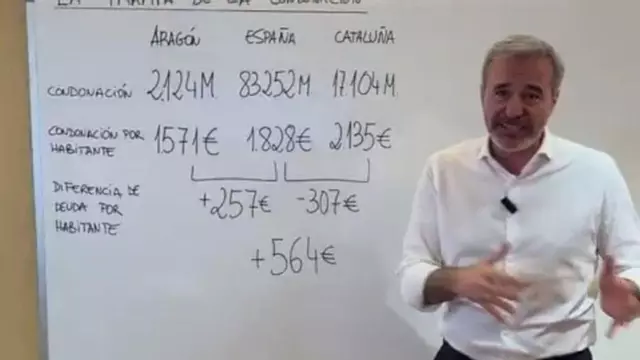 LA TRAMPA DE LA CONDONACIÓN
ARAGÓN ESPAÑA CATALUÑA
CONDONACIÓN 2.124M 83.252M 17.104M
CONDONACIÓN POR HABITANTE 1.571€ 1.828€ 2.135€
DIFERENCIA DE DEUDA POR HABITANTE +257€ -307€
+564€